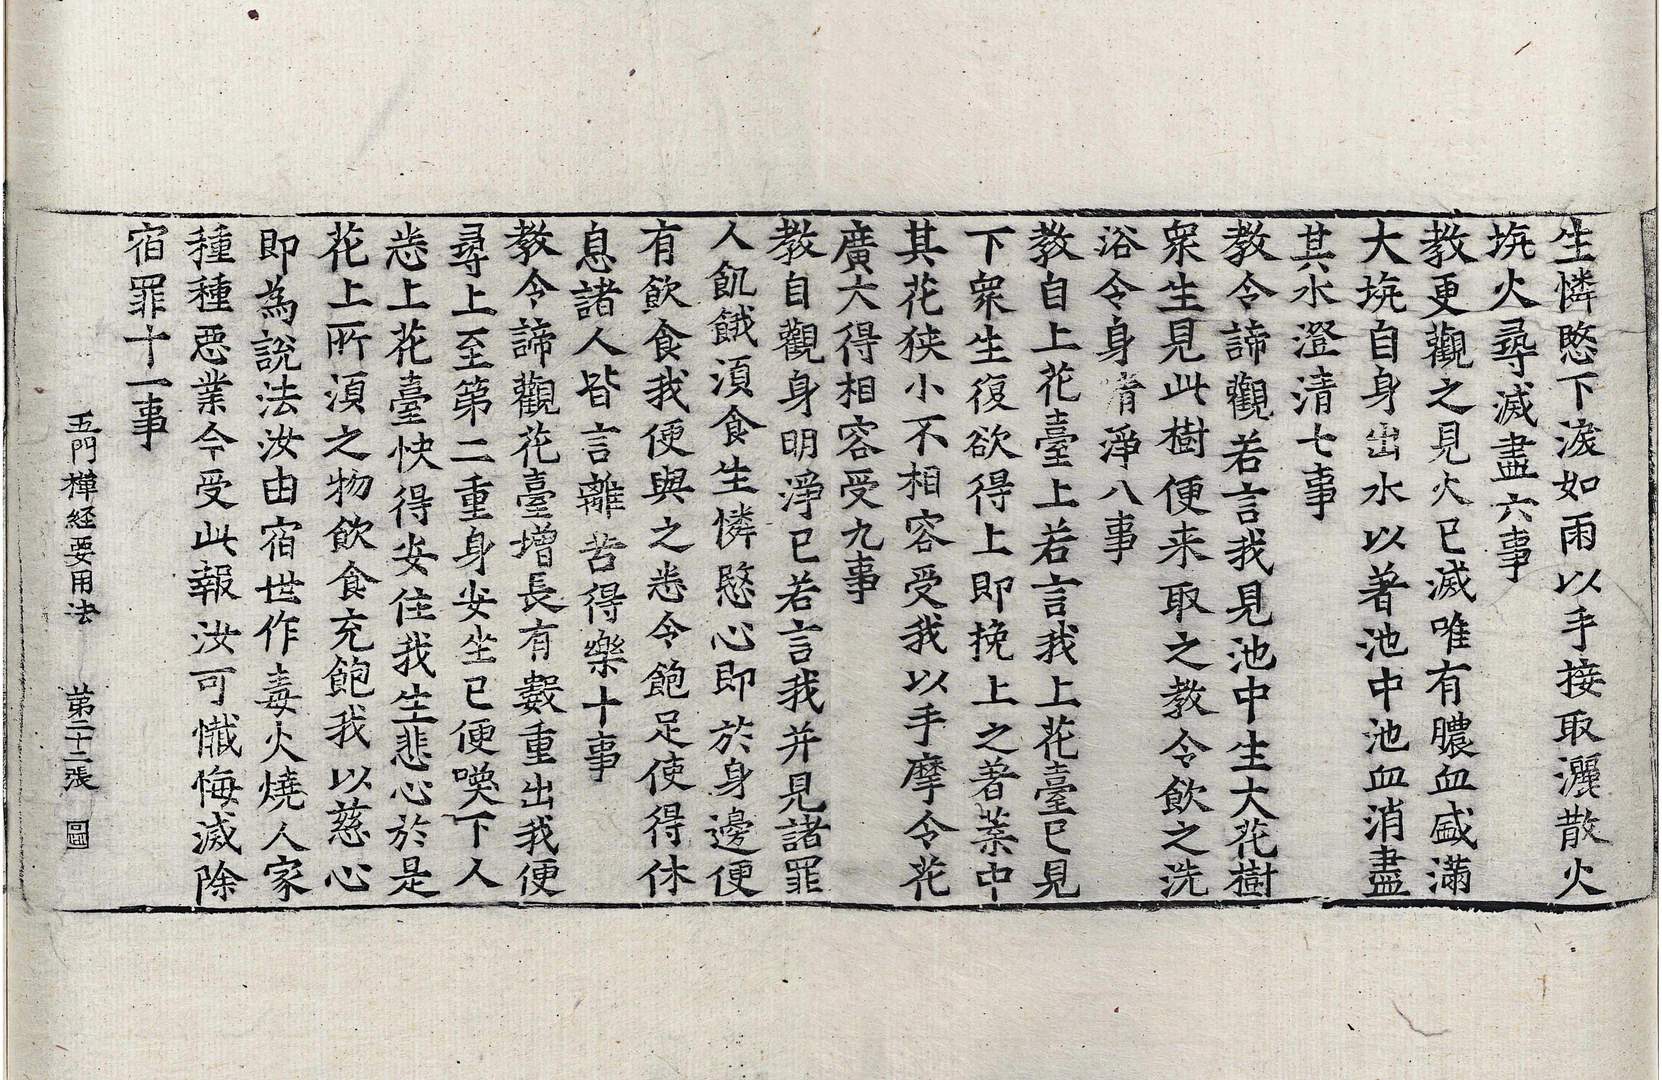 生憐愍下淚如雨以手接取灑散火
坑火尋滅盡六事
教更觀之見火已滅唯有膿血盛滿
大坑自身出水以著池中池血消盡
其水澄清七事
教令諦觀若言我見池中生大花樹
衆生見此樹便来取之教令飲之洗
浴令身淨八事
教自上花臺上若言我上花臺已見
下衆生復欲得上即挽上之著葉中
其花狹小不相容受我以手摩令花
廣大得相容受九事
教自觀身明淨已若言我并見諸罪
人飢餓須食生憐愍心即於身邊便
有飲食我便與之悉令飽足使得休
息諸人皆言離苦得樂十事
教令諦觀花臺增長有數重出我便
尋上至第二重身安坐已便喚下人
悉上花臺快得安住我生悲心於是
花上所須之物飲食充飽我以慈心
即為說法汝由宿世作毒火燒人家
種種惡業今受此報汝可懺悔滅除
宿罪十一事
五門禪経要用法 第二十二張 圖